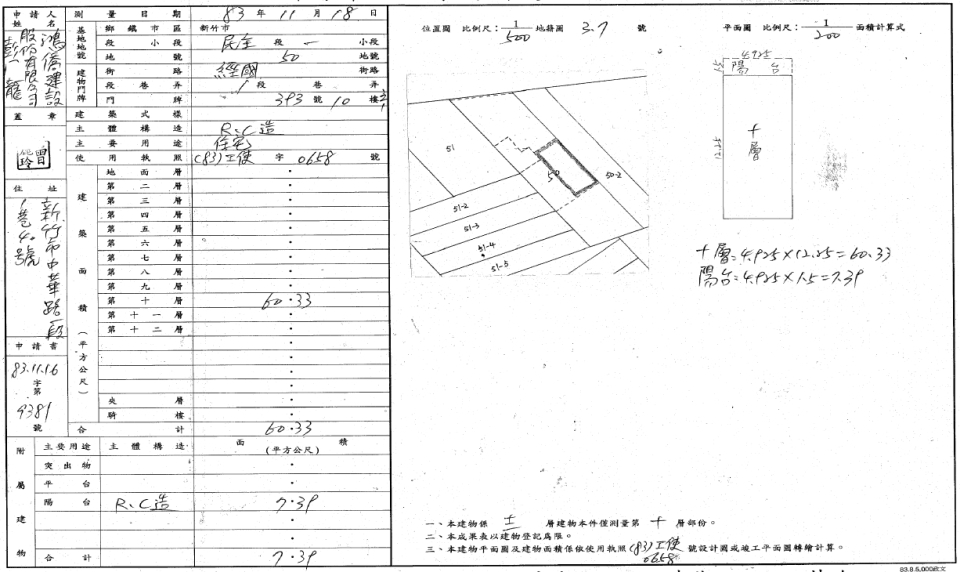 申請人姓名 鴻僑建設股份有限公司
測量日期 83年11月18日
基地地號 鄉鎮市區 新竹市
段小段 民主段一小段
地號 50 地號
建物門牌 街路 經國 街路
段巷弄 1段 巷 弄
門牌 393號10樓
蓋章
建築式樣
主體構造 R.C造
主要用途 住宅
使用執照 (83)工使字0658號
住址 新竹市中華路 段 巷40號
建築面積(平方公尺)
地面層 ·
第二層 ·
第三層 ·
第四層 ·
第五層 ·
第六層 ·
第七層 ·
第八層 ·
第九層 ·
第十層 60·33
第十一層 ·
第十二層 ·
夾層 ·
騎樓 ·
合計 60·33
申請書 83.11.16 字第9381號
附屬建物
主要用途 主體構造 面積(平方公尺)
突出物 ·
平台 ·
陽台 R.C造 7·39
合計 7·39
位置圖 比例尺:1/500 地籍圖 3.7 號
51
50
50-2
51-2
51-3
51-4
51-5
平面圖 比例尺:1/200 面積計算式
4.925
1.5
陽台
12.25
十層
十層:4.925×12.25=60.33
陽台:4.925×1.5=7.39
一、本建物係 十二 層建物本件僅測量第 十 層部份。
二、本成果表以建物登記為限。
三、本建物平面圖及建物面積係依使用執照(83)工使0658號設計圖或竣工平面圖轉繪計算。